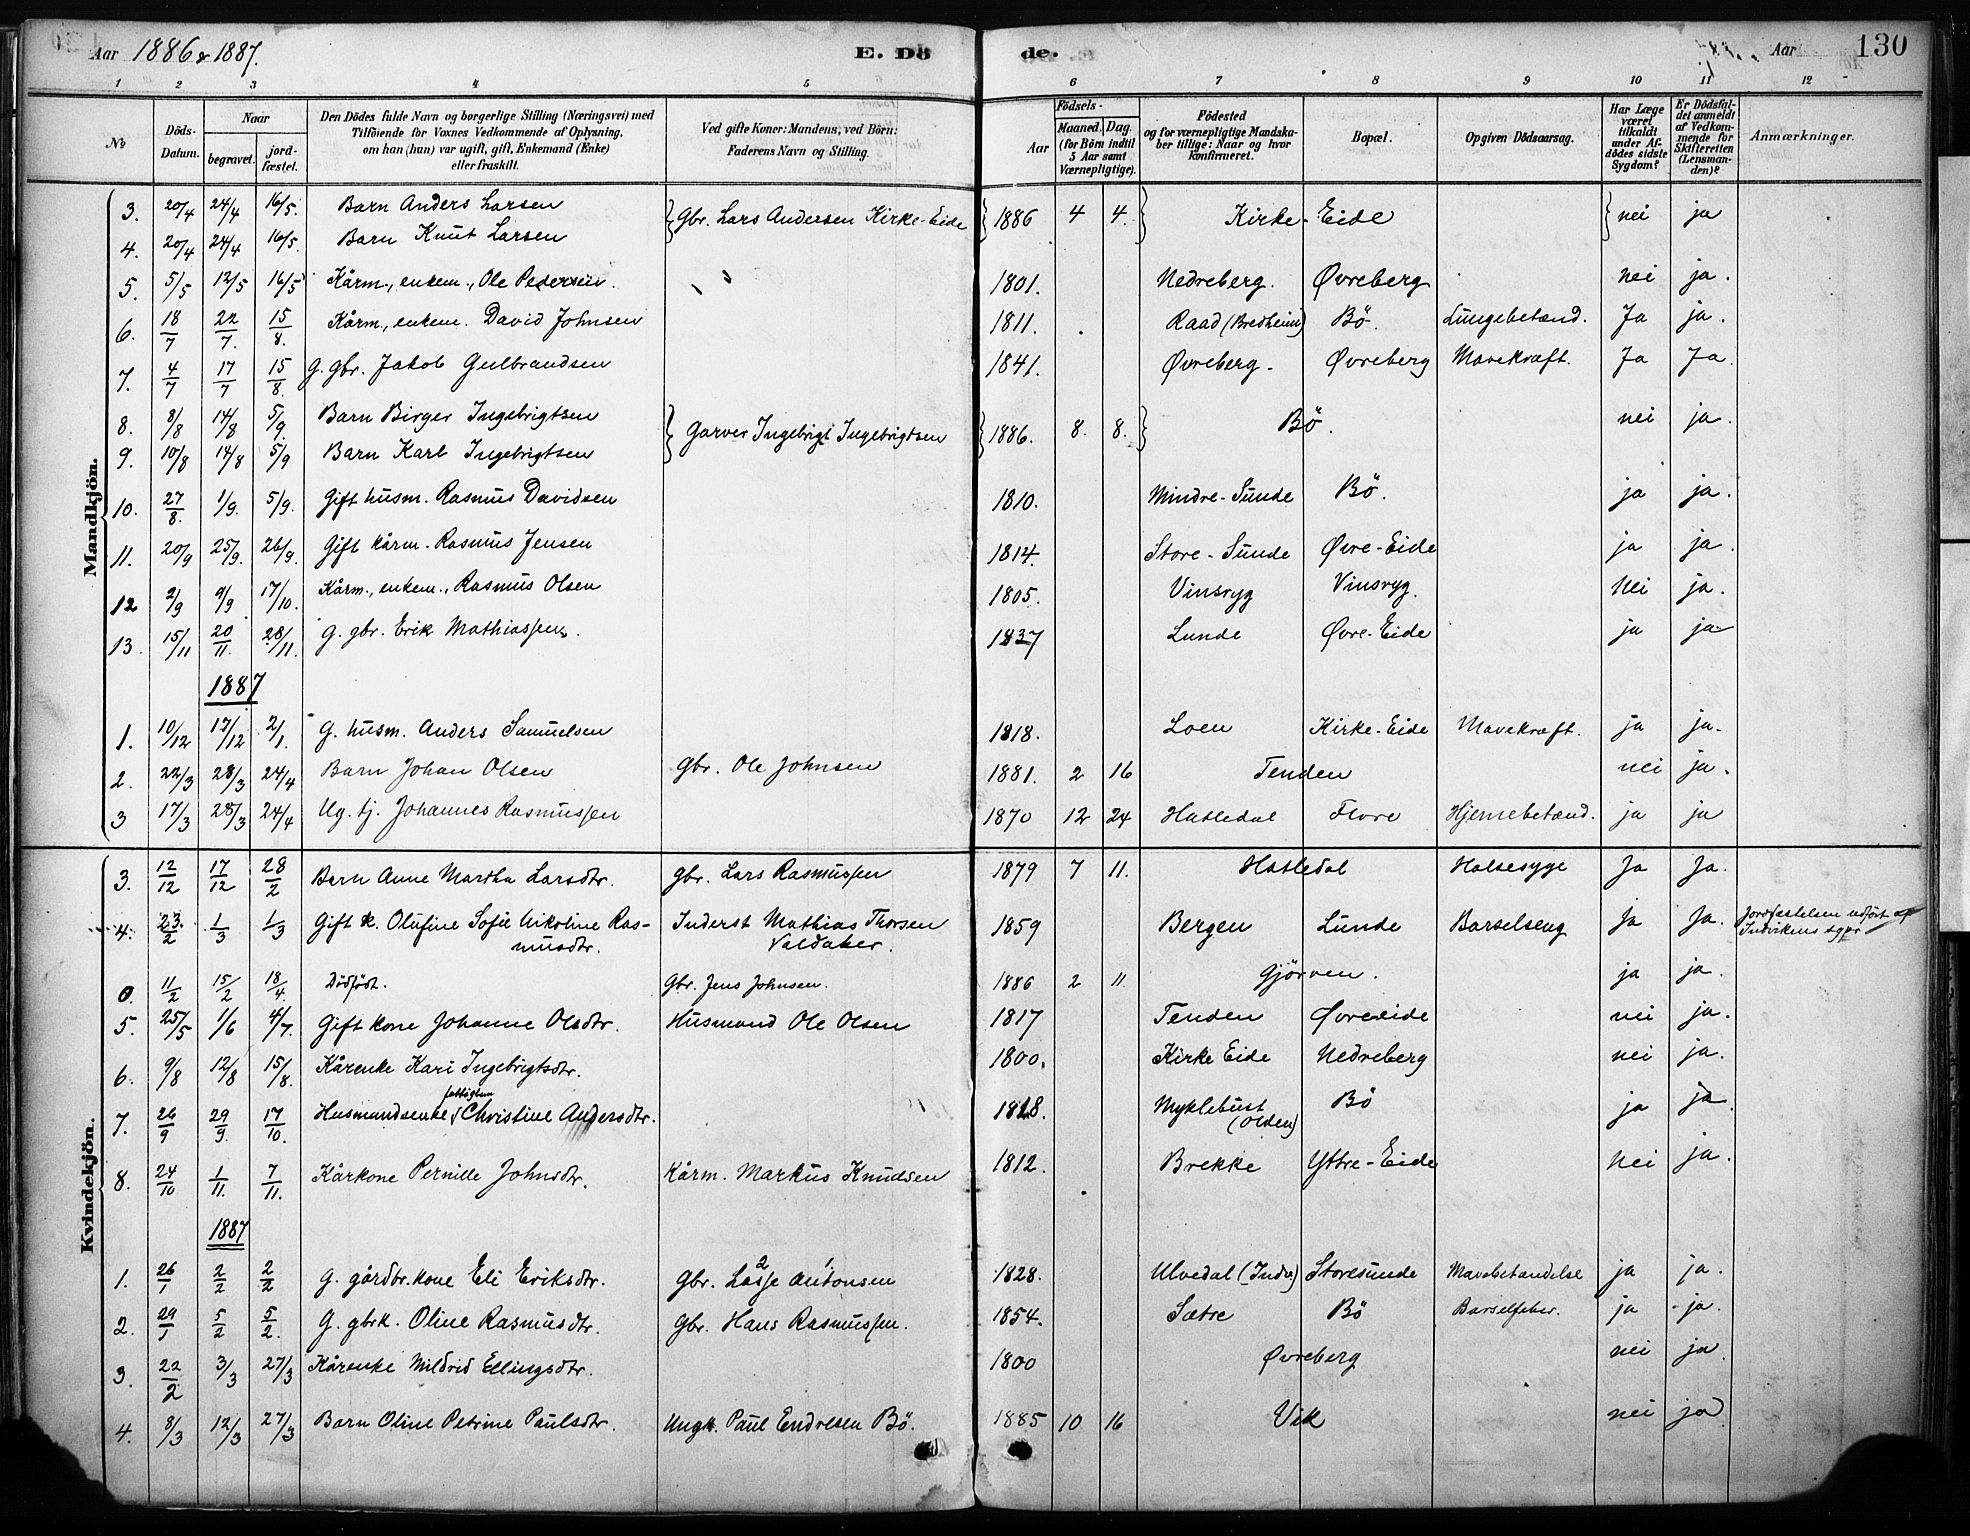 Aar 1886 & 1887. E. Dö de. Aar 130
1 2 3 4 5 6 7 8 9 10 11 12
No Döds-Datum. Naar begravet. jordfæstet. Den Dödes fulde Navn og borgerlige Stilling (Næringsvei) med Tilföiende for Voxnes Vedkommende af Oplysning, om han (hun) var ugift, gift, Enkemand (Enke) eller fraskilt. Ved gifte Koner: Mandens, ved Börn: Faderens Navn og Stilling. Födsels- Aar Maaned. Dag. (for Börn indtil 5 Aar samt Værnepligtige). Födested og for værnepligtige Mandskaber tillige: Naar og hvor konfirmeret. Bopæl. Opgiven Dödsaarsag. Har Læge været tilkaldt under Afdödes sidste Sygdom? Er Dödsfaldet anmeldt af Vedkommende for Skifteretten (Lensmanden)? Anmærkninger.
Mandkjön.
3. 20/4 24/4 16/5. Barn Anders Larsen } Gbr. Lars Andersen Kirke-Eide } 1886 4 4. } Kirke-Eide } nei ja
4. 20/4 24/4 16/5. Barn Knut Larsen
5. 5/5 12/5 16/5 Kårm., enkem., Ole Pedersen. 1801. Nedreberg. Øvreberg nei ja.
6. 18/7 22/7. 15/8. Kårm., enkem. David Johnsen 1811. Raad (Bredheim) Bö. Lungebetænd. Ja ja.
7. 4/7 17/7 15/8. G. gbr. Jakob Gulbrandsen 1841. Øvreberg. Øvreberg Mavekræft. Ja Ja.
8. 8/8 14/8 5/9 Barn Birger Ingebrigtsen } Garver Ingebrigt Ingebrigtsen } 1886. 8. 8. } Bö. nei ja.
9. 10/8 14/8 5/9 Barn Karl Ingebrigtsen
10. 27/8. 1/9. 5/9. Gift husm. Rasmus Davidsen 1810. Mindre-Sunde Bö. ja ja.
11. 20/9 25/9. 26/9. Gift kårm. Rasmus Jensen 1814. Store-Sunde Øvre-Eide ja ja.
12 2/9 9/9 17/10. Kårm., enkem., Rasmus Olsen 1805. Vinsryg Vinsryg. Nei ja.
13. 15/11 20/11. 28/11. G. gbr. Erik Mathiassen. 1837 Lunde Øvre-Eide ja ja
1887
1. 10/12 17/12 2/1. G. husm. Anders Samuelsen 1818. Loen Kirke-Eide Mavekræft. ja ja.
2. 22/3 28/3 24/4 Barn Johan Olsen Gbr. Ole Johnsen 1881. 2 16 Tenden nei ja.
3 17/3 28/3 24/4 Ug. tj. Johannes Rasmussen 1870 12 24 Hatledal Flore Hjernebetænd. ja ja
Kvindekjön.
3. 12/12 17/12 28/2 Barn Anne Martha Larsdtr. Gbr. Lars Rasmussen 1879 7 11. Hatledal Halsesyge Ja Ja.
4. 23/2 1/3 1/3 Gift k. Olufine Sofie Nikoline Ras- Inderst Mathias Thorsen 1859 Bergen Lunde Barselseng Ja Ja. Jordfæstelsen udfört af
musdtr. Valdaker. Indvikens sgpr
0. 11/2 15/2 18/4. Dödfödt. Gbr. Jens Johnsen. 1886 2 11. Gjörven. ja ja.
5. 25/5 1/6 4/7. Gift kone Johanne Olsdtr. Husmand Ole Olsen 1817 Tenden Øvreeide nei ja.
6. 9/8 12/8 15/8. Kårenke Kari Ingebrigtsdtr. 1800. Kirke Eide Nedreberg nei ja.
fattiglem
7. 26/9 29/9. 17/10. Husmandsenke Christine Andersdtr. 1828. Myklebust Bö ja ja.
(Olden)
8. 24/10 1/11. 7/11. Kårkone Pernille Johnsdtr. Kårm. Markus Knudsen 1812. Brekke Yttre-Eide Nei ja.
1887
1. 26/1 2/2 2/2 G. gårdbr. kone Eli Eriksdtr. Gbr. Lasse Antonsen 1828. Ulvedal (Indv) Storesunde Mavebetændelse ja ja.
2. 29/1 5/2 5/2. G. gbrk. Oline Rasmusdtr. Gbr. Hans Rasmussen. 1854. Sætre Bö Barselfeber. ja ja.
3. 22/2 3/3 27/3 Kårenke Mildrid Ellingsdtr. 1800 Øvreberg nei ja.
4. 8/3 12/3 27/3 Barn Oline Petrine Paulsdtr. Ungk. Paul Endresen Bö. 1885 10 16 Vik nei ja.